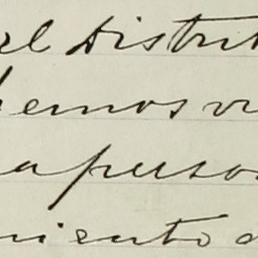 el Distrit
hemos vi
a perso
miento d